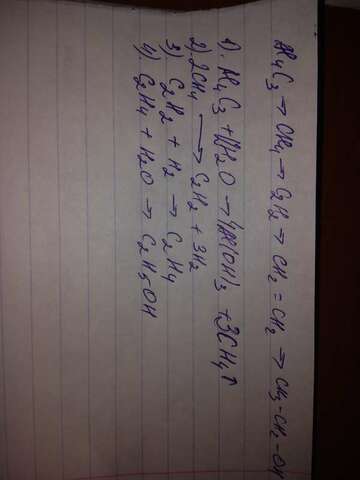 Al₄C₃ → CH₄ → C₂H₂ → CH₂ = CH₂ → CH₃-CH₂-OH
1). Al₄C₃ + 12H₂O → 4Al(OH)₃ + 3CH₄↑
2) 2CH₄ → C₂H₂ + 3H₂
3) C₂H₂ + H₂ → C₂H₄
4) C₂H₄ + H₂O → C₂H₅OH